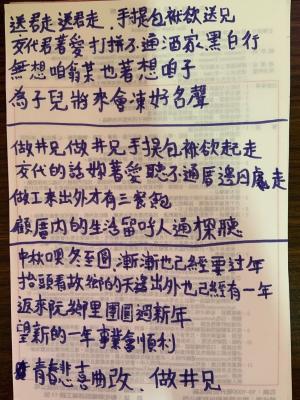 送君走送君走、手提包袱欲送兄
交代君著愛打拼不通酒家黑白行
無想咱翁某也著想咱子
為子兒將來會凍好名聲
做井兄做井兄手提包袱欲起走
交代的話妳著愛聽不通厝邊四處走
做工來出外才有三餐飽
顧厝內的生活留呼人通探聽
中秋冬至圓、漸漸也已經要过年
抬頭看故鄉的天邊出外也已經有一年
返來阮鄉里團圓過新年
望新的一年事業會順利
青春悲喜曲改、做井兄